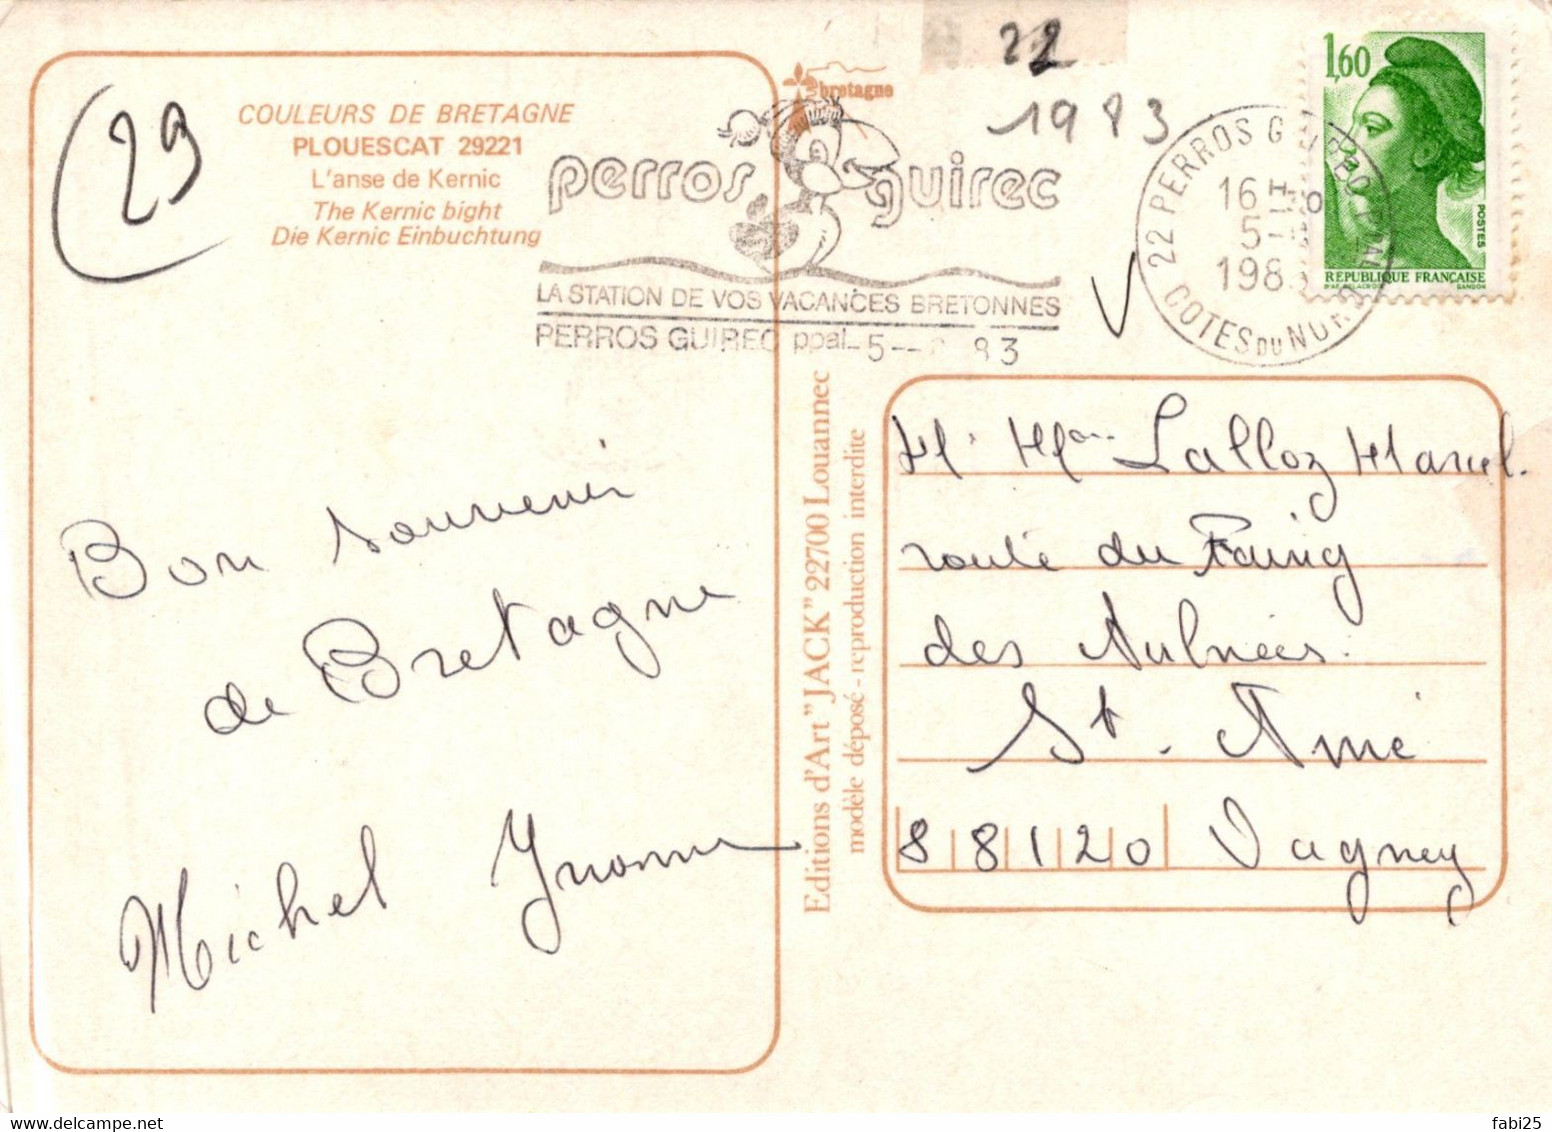 29
COULEURS DE BRETAGNE
PLOUESCAT 29221
L'anse de Kernic
The Kernic bight
Die Kernic Einbuchtung
bretagne
22
1983
perros guirec
LA STATION DE VOS VACANCES BRETONNES
PERROS GUIREC ppal 5-- 83
22 PERROS GUIREC PAL
16 H
5-
198
COTES DU NORD
1,60
POSTES
REPUBLIQUE FRANÇAISE
D'AP. DELACROIX GANDON
Bon souvenir
de Bretagne
Michel Yvonne
Editions d'Art "JACK" 22700 Louannec
modèle déposé - reproduction interdite
M. Mme Lalloz Marcel.
route du Faing
des Aulnées.
St. Amé
88120 Vagney
fabi25